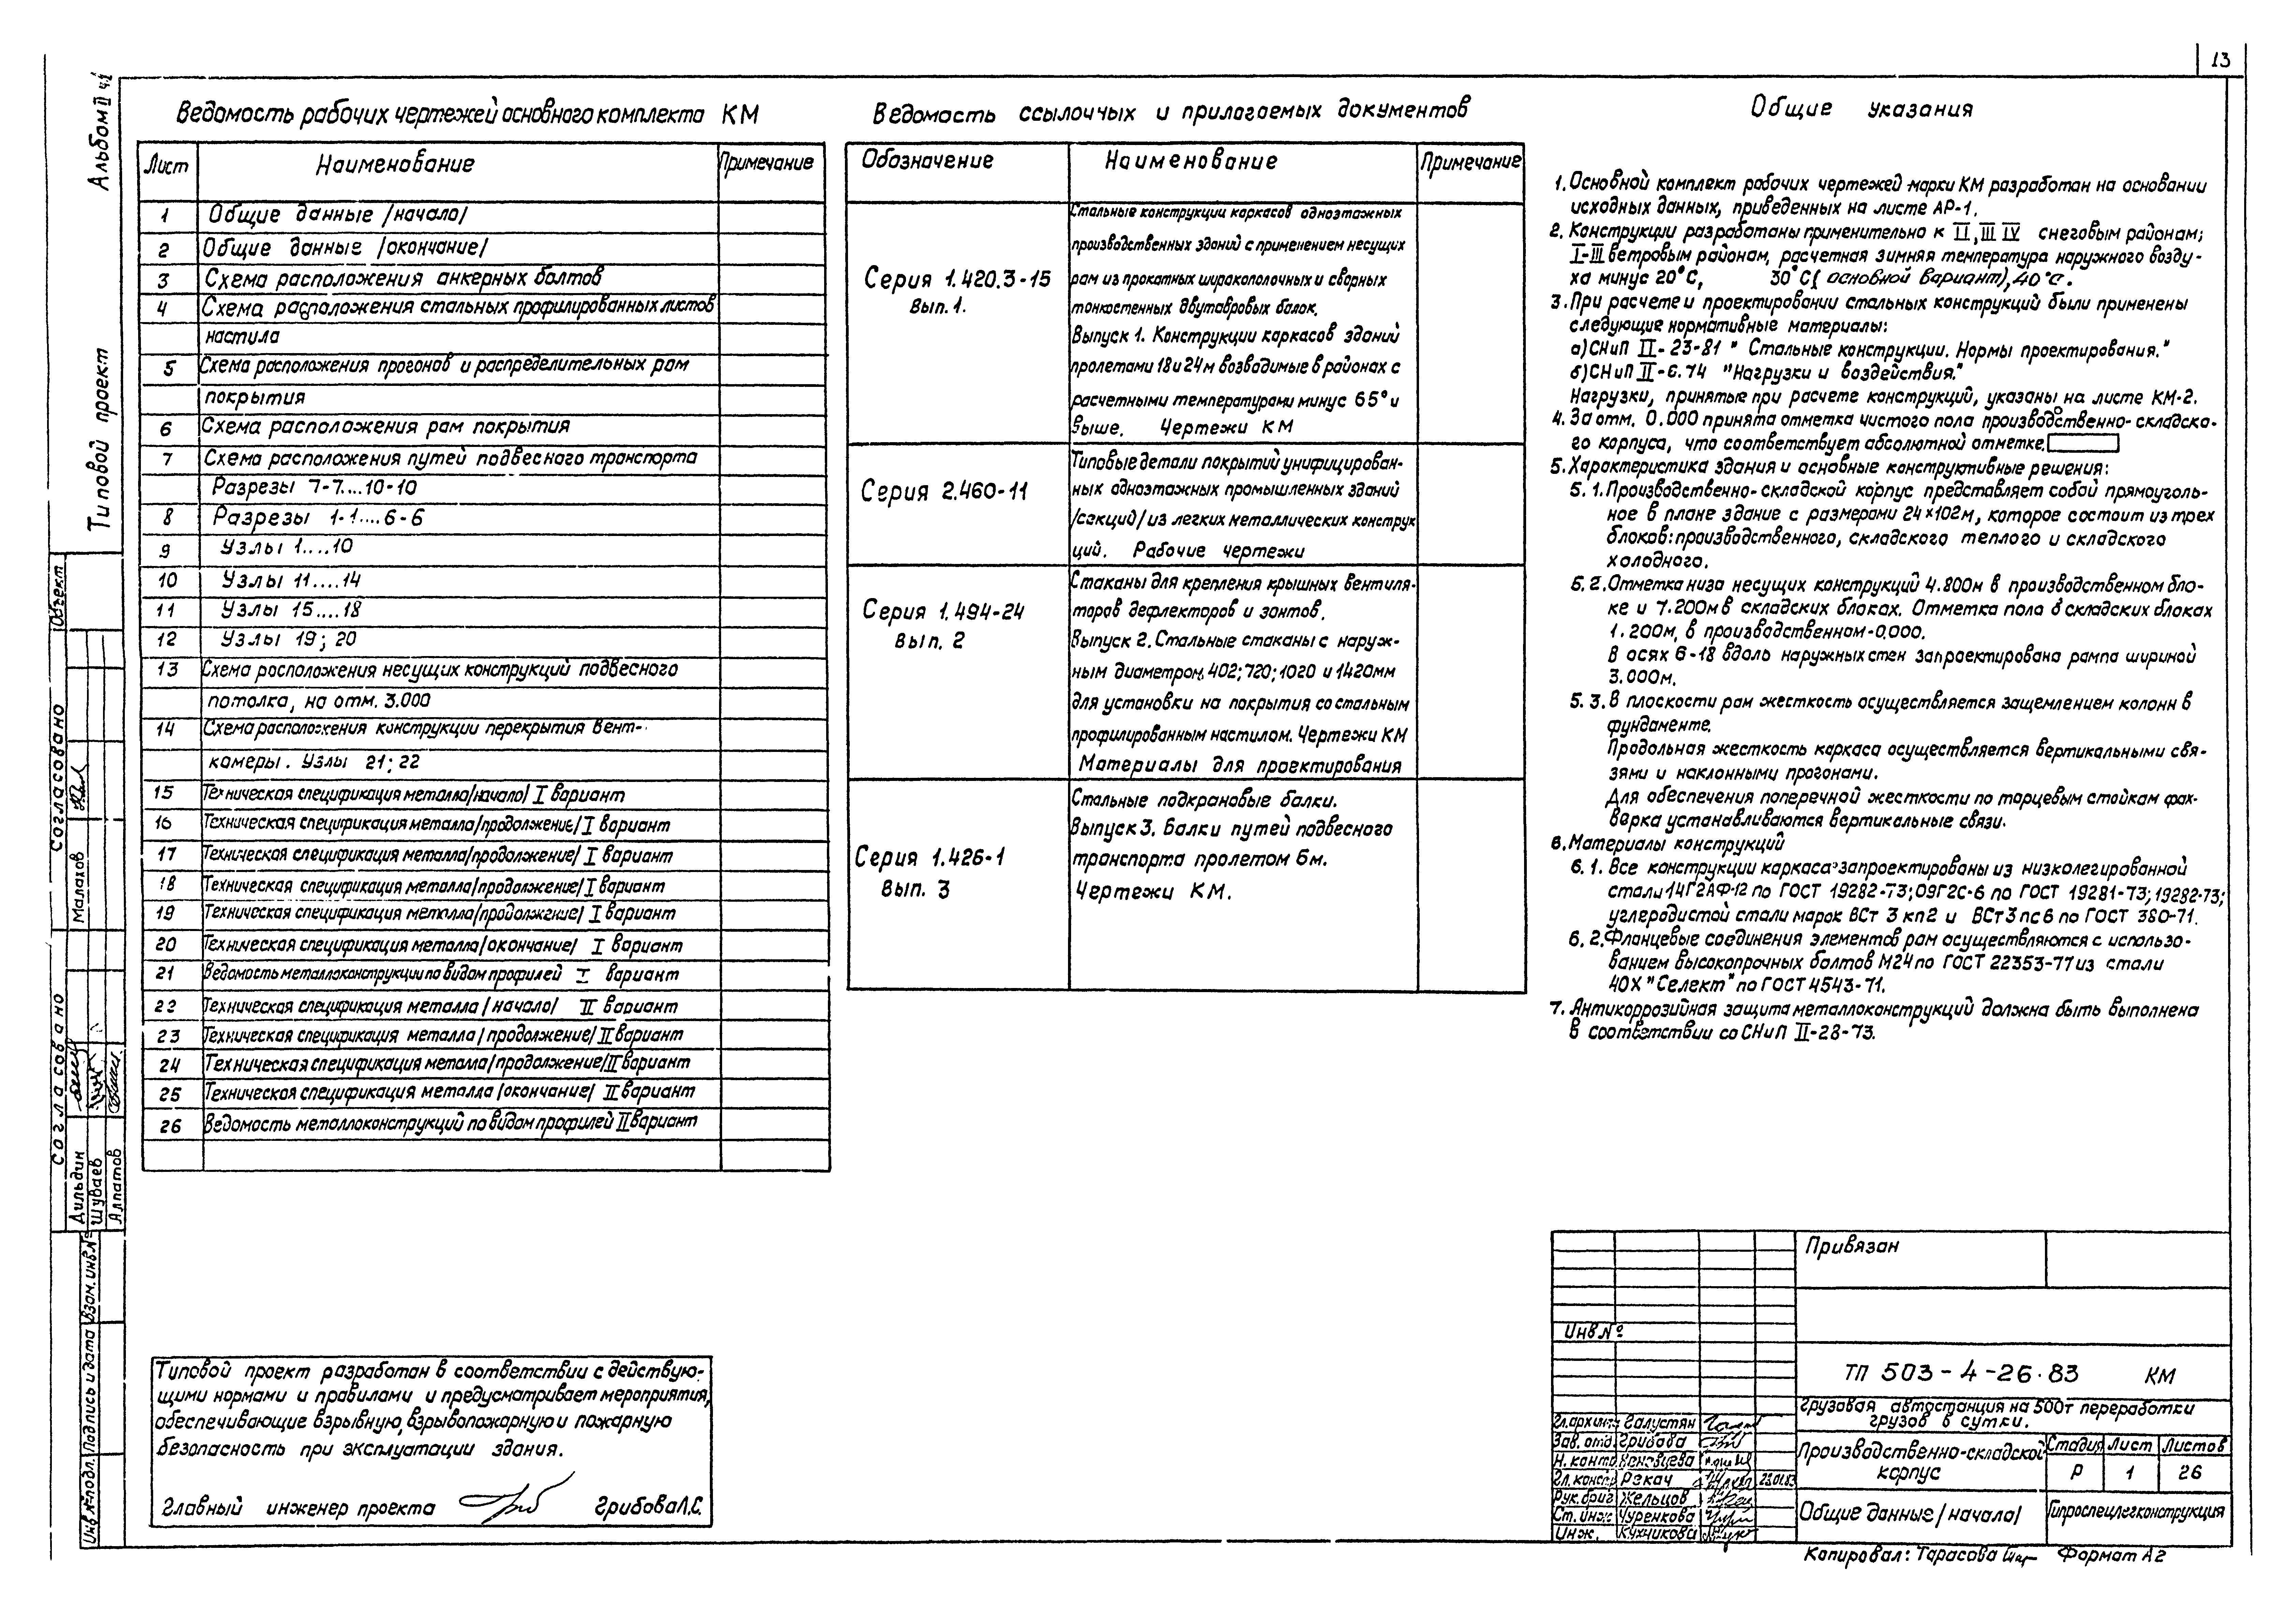 13
Альбом II
Типовой проект
Ведомость рабочих чертежей основного комплекта КМ
Лист Наименование Примечание
1 Общие данные /начало/
2 Общие данные /окончание/
3 Схема расположения анкерных болтов
4 Схема расположения стальных профилированных листов
настила
5 Схема расположения прогонов и распределительных рам
покрытия
6 Схема расположения рам покрытия
7 Схема расположения путей подвесного транспорта
Разрезы 7-7....10-10
8 Разрезы 1-1....6-6
9 Узлы 1....10
10 Узлы 11....14
11 Узлы 15....18
12 Узлы 19; 20
13 Схема расположения несущих конструкций подвесного
потолка, на отм. 3.000
14 Схема расположения конструкции перекрытия вент-
камеры. Узлы 21; 22
15 Техническая спецификация металла/начало/ I вариант
16 Техническая спецификация металла/продолжение/ I вариант
17 Техническая спецификация металла/продолжение/ I вариант
18 Техническая спецификация металла/продолжение/ I вариант
19 Техническая спецификация металла/продолжение/ I вариант
20 Техническая спецификация металла/окончание/ I вариант
21 Ведомость металлоконструкции по видам профилей I вариант
22 Техническая спецификация металла /начало/ II вариант
23 Техническая спецификация металла /продолжение/ II вариант
24 Техническая спецификация металла/продолжение/ II вариант
25 Техническая спецификация металла /окончание/ II вариант
26 Ведомость металлоконструкций по видам профилей II вариант
Ведомость ссылочных и прилагаемых документов
Обозначение Наименование Примечание
Серия 1.420.3-15
вып. 1.
Стальные конструкции каркасов одноэтажных
производственных зданий с применением несущих
рам из прокатных широкополочных и сварных
тонкостенных двутавровых балок.
Выпуск 1. Конструкции каркасов зданий
пролетами 18 и 24 м возводимые в районах с
расчетными температурами минус 65° и
выше. Чертежи КМ
Серия 2.460-11
Типовые детали покрытий унифицирован-
ных одноэтажных промышленных зданий
/секций/ из легких металлических конструк
ций. Рабочие чертежи
Серия 1.494-24
вып. 2
Стаканы для крепления крышных вентиля-
торов дефлекторов и зонтов.
Выпуск 2. Стальные стаканы с наруж-
ным диаметром 402; 720; 1020 и 1420мм
для установки на покрытия со стальным
профилированным настилом. Чертежи КМ
Материалы для проектирования
Серия 1.426-1
вып. 3
Стальные подкрановые балки.
Выпуск 3. Балки путей подвесного
транспорта пролетом 6м.
Чертежи КМ.
Общие указания
1. Основной комплект рабочих чертежей марки КМ разработан на основании
исходных данных, приведенных на листе АР-1.
2. Конструкции разработаны применительно к II, III IV снеговым районам;
I-III ветровым районам, расчетная зимняя температура наружного возду-
ха минус 20°С, 30°С (основной вариант), 40°с.
3. При расчете и проектировании стальных конструкций были применены
следующие нормативные материалы:
а) СНиП II-23-81 "Стальные конструкции. Нормы проектирования."
б) СНиП II-6.74 "Нагрузки и воздействия."
Нагрузки, принятые при расчете конструкций, указаны на листе КМ-2.
4. За отм. 0.000 принята отметка чистого пола производственно-складско-
го корпуса, что соответствует абсолютной отметке.
5. Характеристика здания и основные конструктивные решения:
5. 1. Производственно-складской корпус представляет собой прямоуголь-
ное в плане здание с размерами 24×102м, которое состоит из трех
блоков: производственного, складского теплого и складского
холодного.
5. 2. Отметка низа несущих конструкций 4.800м в производственном бло-
ке и 7.200м в складских блоках. Отметка пола в складских блоках
1.200м, в производственном-0.000.
В осях 6-18 вдоль наружных стен запроектирована рампа шириной
3.000м.
5. 3. В плоскости рам жесткость осуществляется защемлением колонн в
фундаменте.
Продольная жесткость каркаса осуществляется вертикальными свя-
зями и наклонными прогонами.
Для обеспечения поперечной жесткости по торцевым стойкам фах-
верка устанавливаются вертикальные связи.
6. Материалы конструкций
6. 1. Все конструкции каркаса запроектированы из низколегированной
стали 14Г2АФ-12 по ГОСТ 19282-73; 09Г2С-6 по ГОСТ 19281-73; 19282-73;
углеродистой стали марок ВСт 3 кп2 и ВСт3пс6 по ГОСТ 380-71.
6. 2. Фланцевые соединения элементов рам осуществляются с использо-
ванием высокопрочных болтов М24 по ГОСТ 22353-77 из стали
40Х "Селект" по ГОСТ 4543-71.
7. Антикоррозийная защита металлоконструкций должна быть выполнена
в соответствии со СНиП II-28-73.
Типовой проект разработан в соответствии с действую-
щими нормами и правилами и предусматривает мероприятия,
обеспечивающие взрывную, взрывопожарную и пожарную
безопасность при эксплуатации здания.
Главный инженер проекта Грибова Л.С.
Объект
Согласовано
Малахов
Согласовано
Дильдин
Шуваев
Алпатов
Взам. инв.№
Подпись и дата
Инв.№ подл.
Привязан
Инв.№
ТП 503-4-26.83 КМ
Грузовая автостанция на 500т переработки
грузов в сутки.
Гл.архит. Галустян
Зав. отд. Грибова
Н. контр.
Гл. констр. Рэкач 22.01.83
Рук. бриг. Жельцов
Ст. инж. Чуренкова
Инж. Кухникова
Производственно-складской
корпус
Стадия Лист Листов
Р 1 26
Общие данные /начало/
Гипроспецлегконструкция
Копировал: Тарасова Формат А2